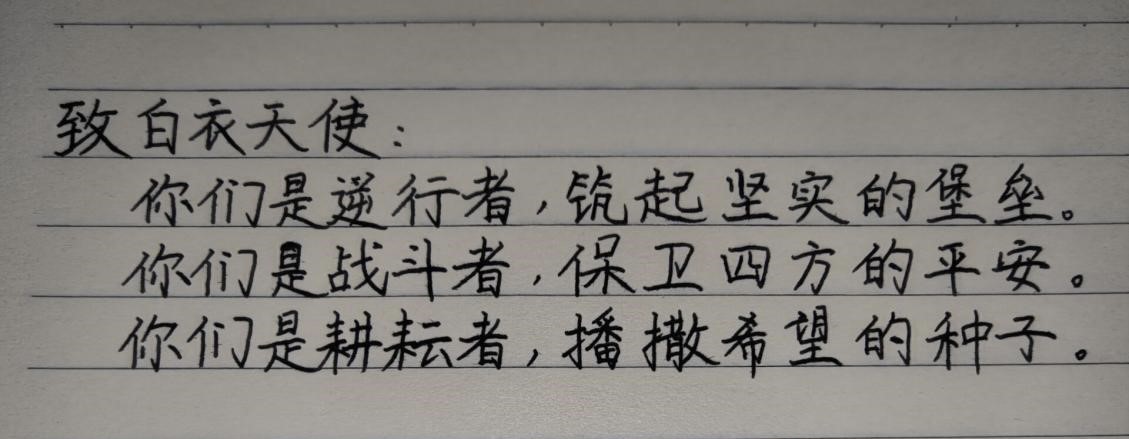 致白衣天使:
你们是逆行者,筑起坚实的堡垒。
你们是战斗者,保卫四方的平安。
你们是耕耘者,播撒希望的种子。